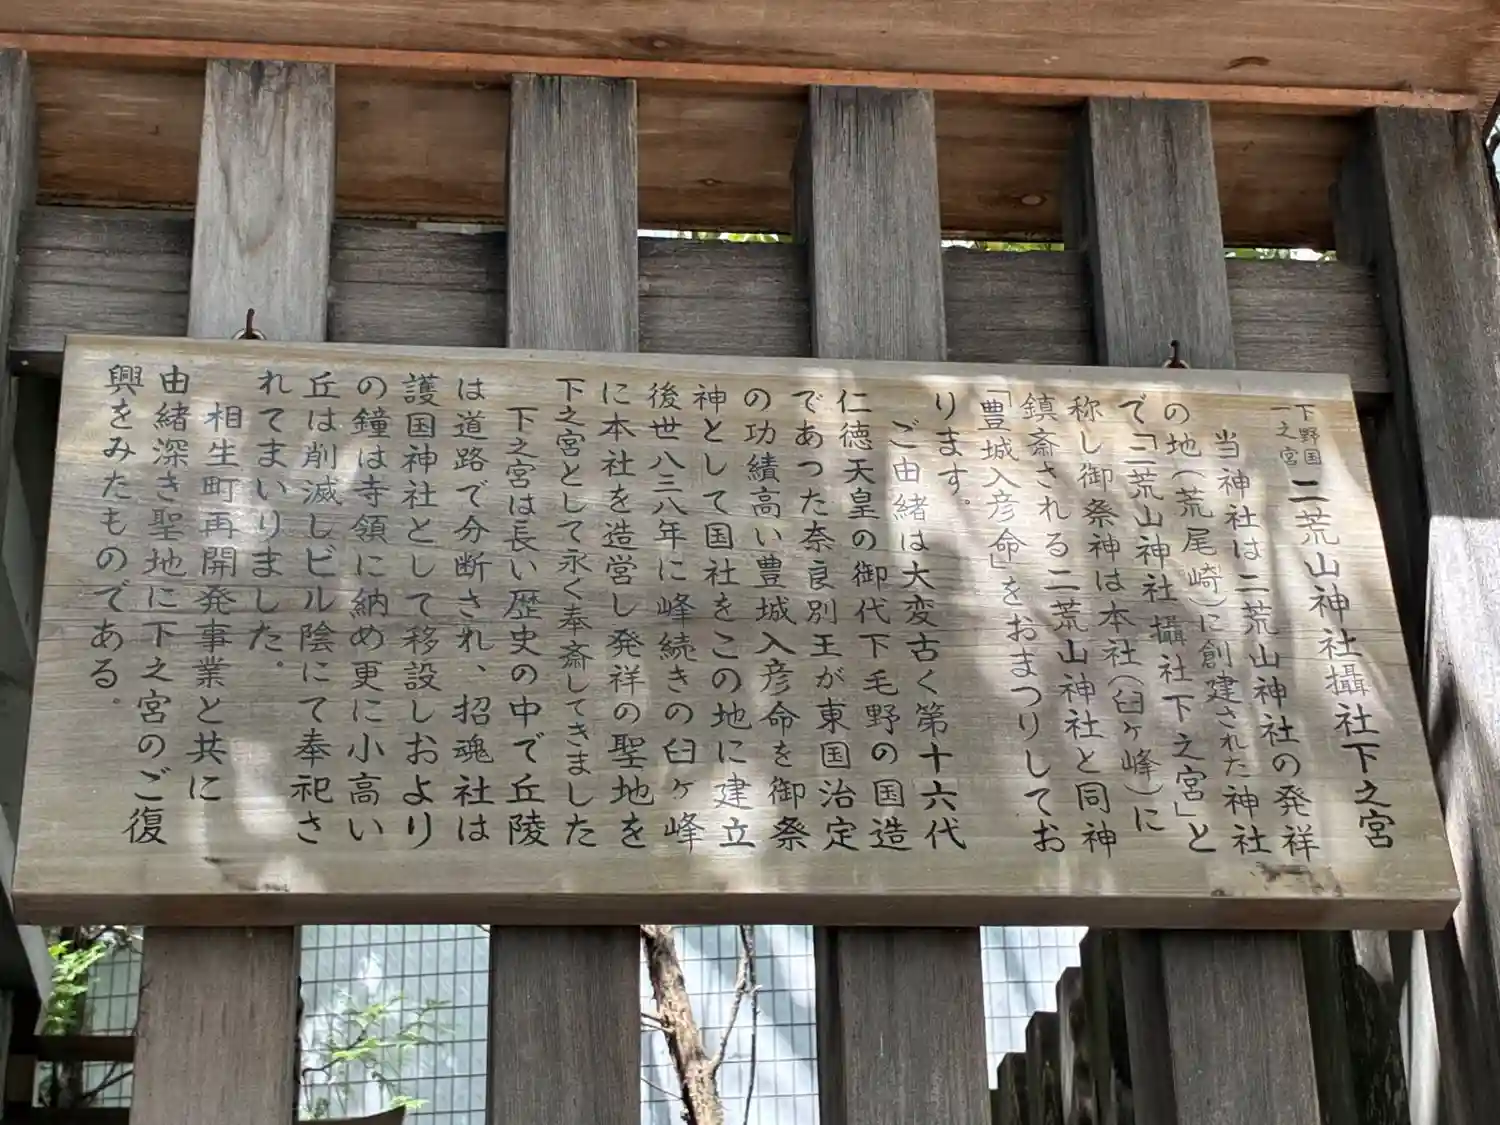 下野国
一之宮
二荒山神社攝社下之宮
当神社は二荒山神社の発祥
の地(荒尾崎)に創建された神社
で「二荒山神社攝社下之宮」と
称し御祭神は本社(臼ヶ峰)に
鎮斎される二荒山神社と同神
「豊城入彦命」をおまつりしてお
ります。
ご由緒は大変古く第十六代
仁徳天皇の御代下毛野の国造
であつた奈良別王が東国治定
の功績高い豊城入彦命を御祭
神として国社をこの地に建立
後世八三八年に峰続きの臼ヶ峰
に本社を造営し発祥の聖地を
下之宮として永く奉斎してきました
下之宮は長い歴史の中で丘陵
は道路で分断され、招魂社は
護国神社として移設しおより
の鐘は寺領に納め更に小高い
丘は削滅しビル陰にて奉祀さ
れてまいりました。
相生町再開発事業と共に
由緒深き聖地に下之宮のご復
興をみたものである。